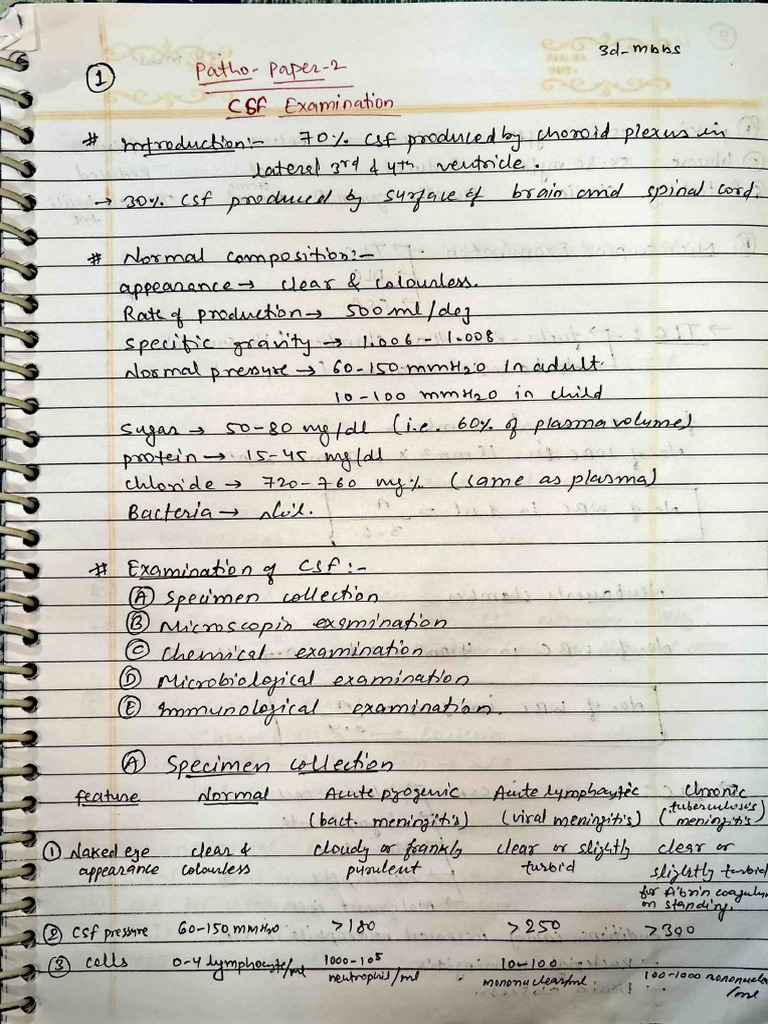 3d-mbbs
① Patho- Paper-2
CSF Examination
# Introduction:- 70% CSF produced by choroid plexus in
lateral 3rd & 4th ventricle.
→ 30% CSF produced by surface of brain and spinal cord.
# Normal composition:-
appearance → clear & colourless.
Rate of production → 500 ml/deg
Specific gravity → 1.006 - 1.008
Normal pressure → 60-150 mmH2O in adult.
10-100 mmH2O in child
Sugar → 50-80 mg/dl (i.e. 60% of plasma volume)
protein → 15-45 mg/dl
chloride → 720-760 mg% (same as plasma)
Bacteria → Nil.
# Examination of CSF:-
Ⓐ Specimen collection
Ⓑ Microscopis examination
Ⓒ Chemical examination
Ⓓ Microbiological examination
Ⓔ Immunological examination.
Ⓐ Specimen collection
feature Normal Acute pyogenic Acute lymphocytic chronic
(bact. meningitis) (viral meningitis) (tuberculosis meningitis)
① Naked eye clear & cloudy or frankly clear or slightly clear or
appearance colourless purulent turbid slightly turbid
for fibrin coagulum
on standing.
② CSF pressure 60-150 mmH2O >180 >250 >300
③ cells 0-4 lymphocyte/ml 1000-10⁵ 10-100
neutrophis/ml mononuclear/ml 100-1000 mononuclea
/ml